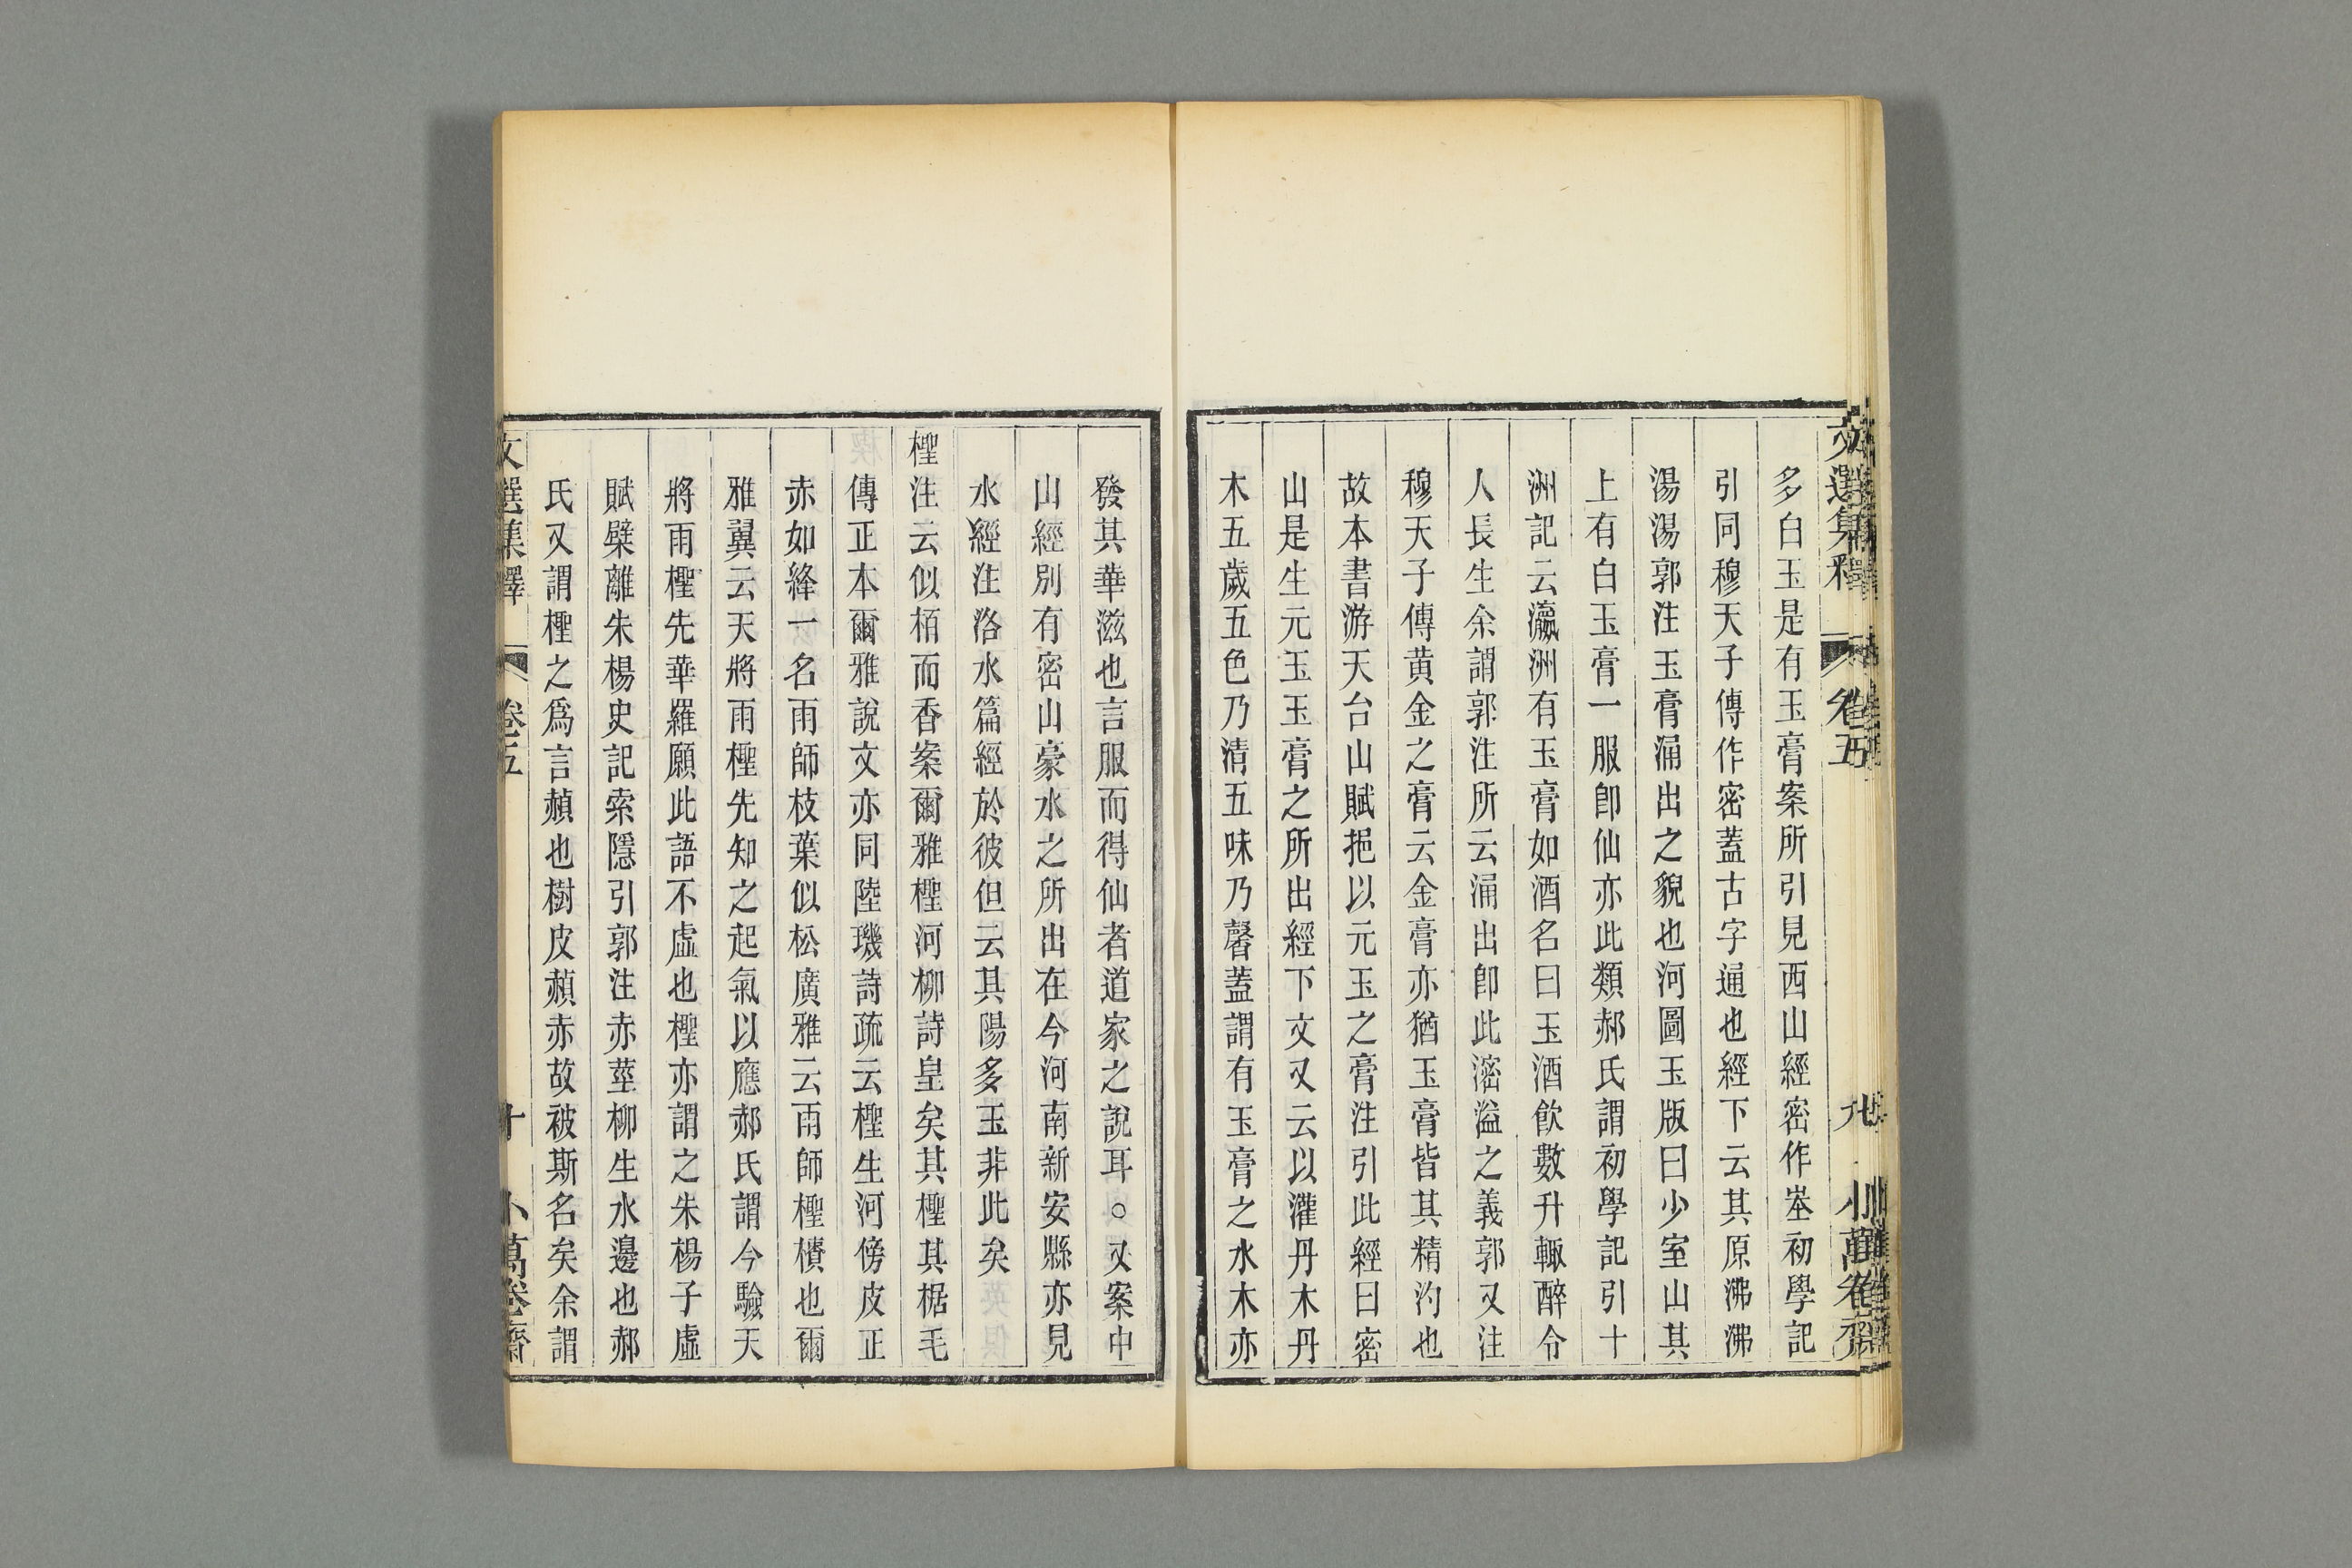 文選集釋 卷五 九 小萬卷齋
多白玉是有玉膏案所引見西山經密作峚初學記
引同穆天子傳作密蓋古字通也經下云其原沸沸
湯湯郭注玉膏涌出之貌也河圖玉版曰少室山其
上有白玉膏一服卽仙亦此類郝氏謂初學記引十
洲記云瀛洲有玉膏如酒名曰玉酒飮數升輙醉令
人長生余謂郭注所云涌出卽此滵溢之義郭又注
穆天子傳黄金之膏云金膏亦猶玉膏皆其精汋也
故本書游天台山賦挹以元玉之膏注引此經曰密
山是生元玉玉膏之所出經下文又云以灌丹木丹
木五歲五色乃清五味乃馨蓋謂有玉膏之水木亦
發其華滋也言服而得仙者道家之說耳○又案中
山經別有密山豪水之所出在今河南新安縣亦見
水經注洛水篇經於彼但云其陽多玉非此矣
檉注云似栢而香案爾雅檉河柳詩皇矣其檉其椐毛
傳正本爾雅說文亦同陸璣詩疏云檉生河傍皮正
赤如絳一名雨師枝葉似松廣雅云雨師檉檟也爾
雅翼云天將雨檉先知之起氣以應郝氏謂今驗天
將雨檉先華羅願此語不虛也檉亦謂之朱楊子虛
賦檗離朱楊史記索隱引郭注赤莖柳生水邊也郝
氏又謂檉之爲言赬也樹皮赬赤故被斯名矣余謂
文選集釋 卷五 十 小萬卷齋